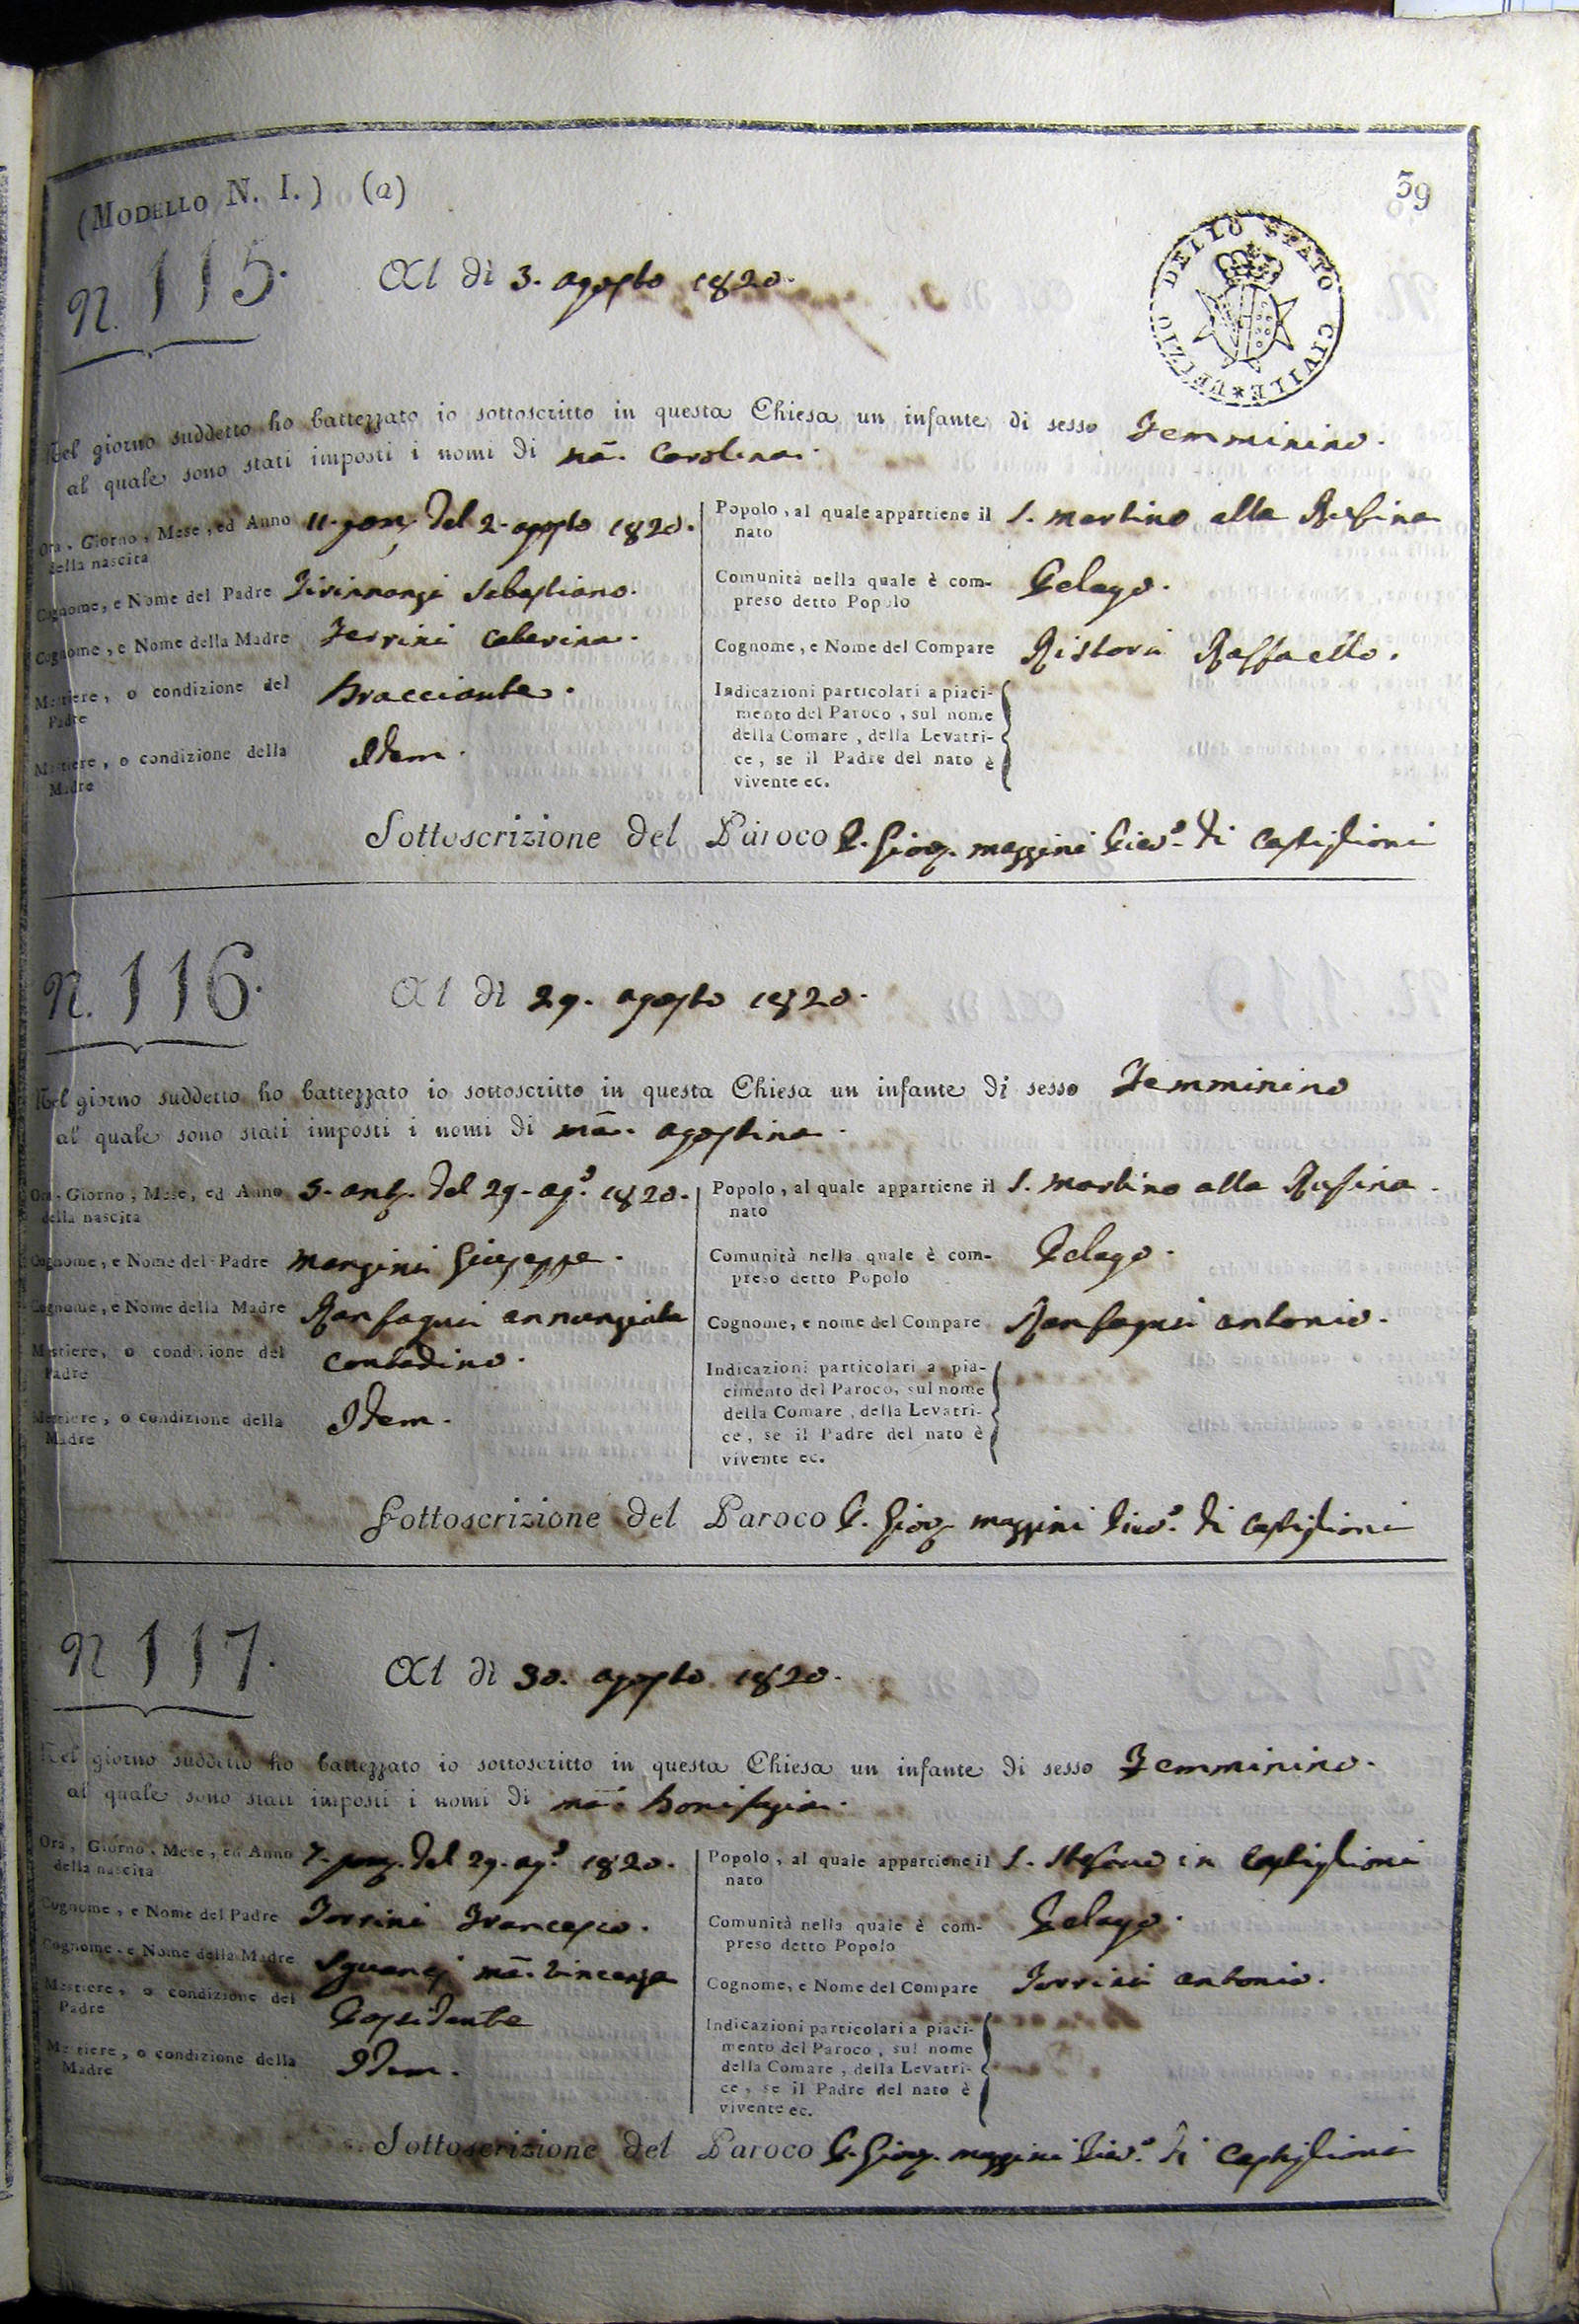 (MODELLO N. I.) (a)
39
UFIZIO DELLO STATO CIVILE
N. 115.
Al dì 3. agosto 1820.
Nel giorno suddetto ho battezzato io sottoscritto in questa Chiesa un infante di sesso Femminino.
al quale sono stati imposti i nomi di Mã. Carolina.
Ora, Giorno, Mese, ed Anno della nascita 11. pom. del 2. agosto 1820.
Cognome, e Nome del Padre Sebastiano.
Cognome, e Nome della Madre Ferrini Caterina.
Mestiere, o condizione del Padre Bracciante.
Mestiere, o condizione della Madre Idem.
Popolo, al quale appartiene il nato S. Martino alla Rufina
Comunità nella quale è compreso detto Popolo Pelago.
Cognome, e Nome del Compare Ristori Raffaello.
Indicazioni particolari a piaci-
mento del Paroco, sul nome
della Comare, della Levatri-
ce, se il Padre del nato è
vivente ec.
Sottoscrizione del Paroco P. Giov. Mazzini Piev.º di Castiglioni
N. 116.
Al dì 29. agosto 1820.
Nel giorno suddetto ho battezzato io sottoscritto in questa Chiesa un infante di sesso Femminino
al quale sono stati imposti i nomi di Mã. Agostina.
Ora, Giorno, Mese, ed Anno della nascita 5. ant. del 29. ag.º 1820.
Cognome, e Nome del Padre Mangini Giuseppe.
Cognome, e Nome della Madre Ranfagni Annunziata
Mestiere, o condizione del Padre Contadino.
Mestiere, o condizione della Madre Idem.
Popolo, al quale appartiene il nato S. Martino alla Rufina.
Comunità nella quale è compreso detto Popolo Pelago.
Cognome, e nome del Compare Ranfagni Antonio.
Indicazioni particolari a pia-
cimento del Paroco, sul nome
della Comare, della Levatri-
ce, se il Padre del nato è
vivente ec.
Sottoscrizione del Paroco P. Giov. Mazzini Piev.º di Castiglioni
N 117.
Al dì 30. agosto 1820.
Nel giorno suddetto ho battezzato io sottoscritto in questa Chiesa un infante di sesso Femminino.
al quale sono stati imposti i nomi di Mã. Bonifazia.
Ora, Giorno, Mese, ed Anno della nascita 7. pom. del 29. ag.º 1820.
Cognome, e Nome del Padre Torrini Francesco.
Cognome, e Nome della Madre Sguanci Mã. Vincenza
Mestiere, o condizione del Padre Possidente
Mestiere, o condizione della Madre Idem.
Popolo, al quale appartiene il nato S. Stefano in Castiglioni
Comunità nella quale è compreso detto Popolo Pelago.
Cognome, e Nome del Compare Torrini Antonio.
Indicazioni particolari a piaci-
mento del Paroco, sul nome
della Comare, della Levatri-
ce, se il Padre del nato è
vivente ec.
Sottoscrizione del Paroco P. Giov. Mazzini Piev.º di Castiglioni